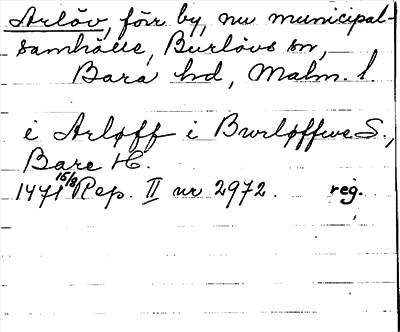 Arlöv, förr by, nu municipal-
samhälle, Burlövs sn,
Bara hd, Malm. l.
i Arløff i Bwrløffwe S.,
Bare H.
1471 15/8 Rep. II nr 2972. reg.